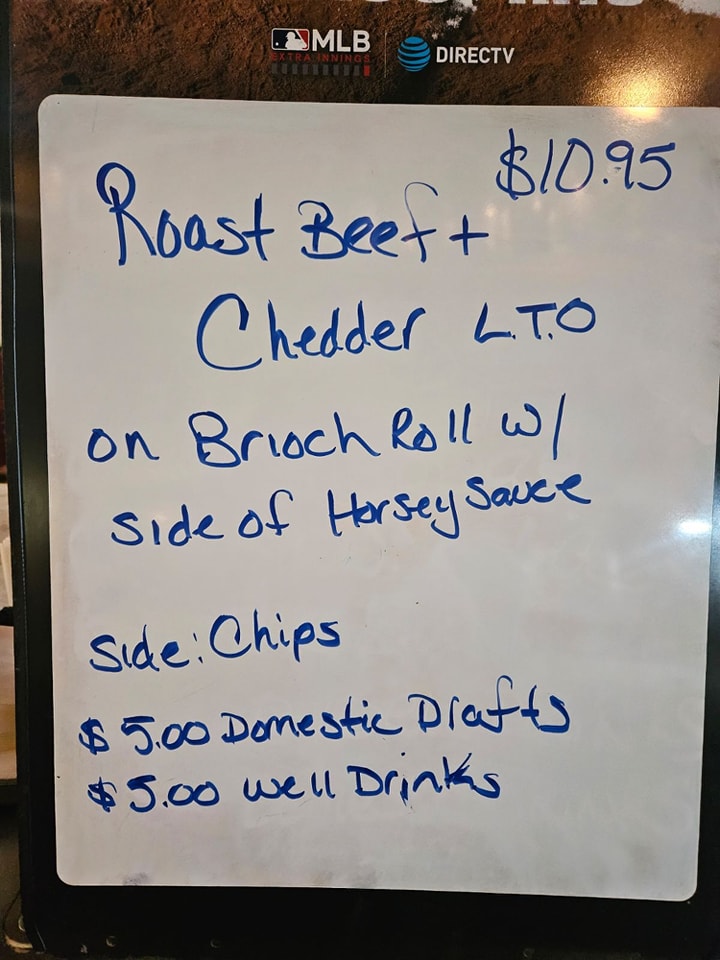 MLB
EXTRA INNINGS
DIRECTV
$10.95
Roast Beef +
Chedder L.T.O
on Brioch Roll w/
side of Horsey Sauce
Side: Chips
$ 5.00 Domestic Drafts
$ 5.00 well Drinks